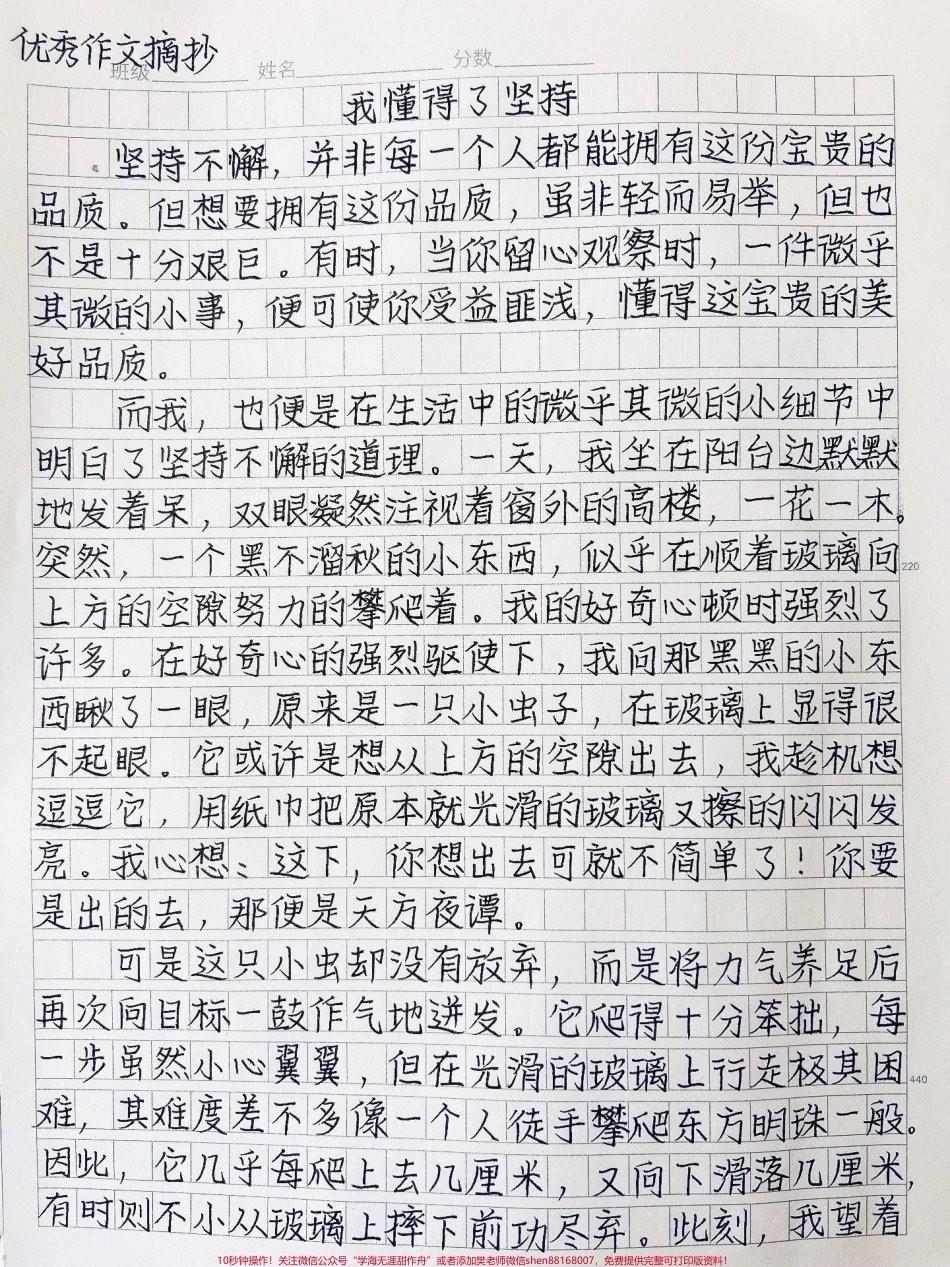 优秀作文摘抄
班级 姓名 分数
我懂得了坚持
坚持不懈，并非每一个人都能拥有这份宝贵的
品质。但想要拥有这份品质，虽非轻而易举，但也
不是十分艰巨。有时，当你留心观察时，一件微乎
其微的小事，便可使你受益匪浅，懂得这宝贵的美
好品质。
而我，也便是在生活中的微乎其微的小细节中
明白了坚持不懈的道理。一天，我坐在阳台边默默
地发着呆，双眼凝然注视着窗外的高楼，一花一木。
突然，一个黑不溜秋的小东西，似乎在顺着玻璃向
220
上方的空隙努力的攀爬着。我的好奇心顿时强烈了
许多。在好奇心的强烈驱使下，我向那黑黑的小东
西瞅了一眼，原来是一只小虫子，在玻璃上显得很
不起眼。它或许是想从上方的空隙出去，我趁机想
逗逗它，用纸巾把原本就光滑的玻璃又擦的闪闪发
亮。我心想：这下，你想出去可就不简单了！你要
是出的去，那便是天方夜谭。
可是这只小虫却没有放弃，而是将力气养足后
再次向目标一鼓作气地迸发。它爬得十分笨拙，每
一步虽然小心翼翼，但在光滑的玻璃上行走极其困
440
难，其难度差不多像一个人徒手攀爬东方明珠一般。
因此，它几乎每爬上去几厘米，又向下滑落几厘米，
有时则不小从玻璃上摔下前功尽弃。此刻，我望着
10秒钟操作！关注微信公众号“学海无涯甜作舟”或者添加樊老师微信shen88168007，免费提供完整可打印版资料！